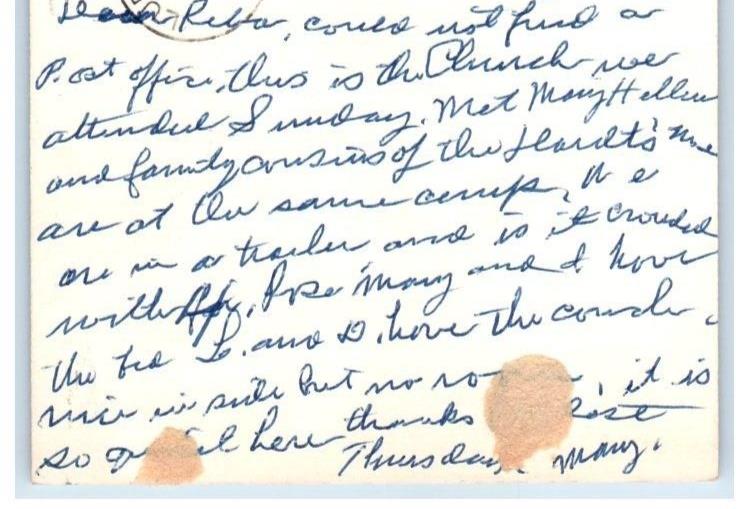 Dear Reba, could not find a
Post office, this is the Church we
attended Sunday. Met Mary Hellen
and family cousins of the Hardts
are at the same camp, We
are in a trailer and is it crowded
with Rose Mary and I have
the bed L. and D. have the couch.
nice in side but no it is
so here thanks
Thursday. Mary.